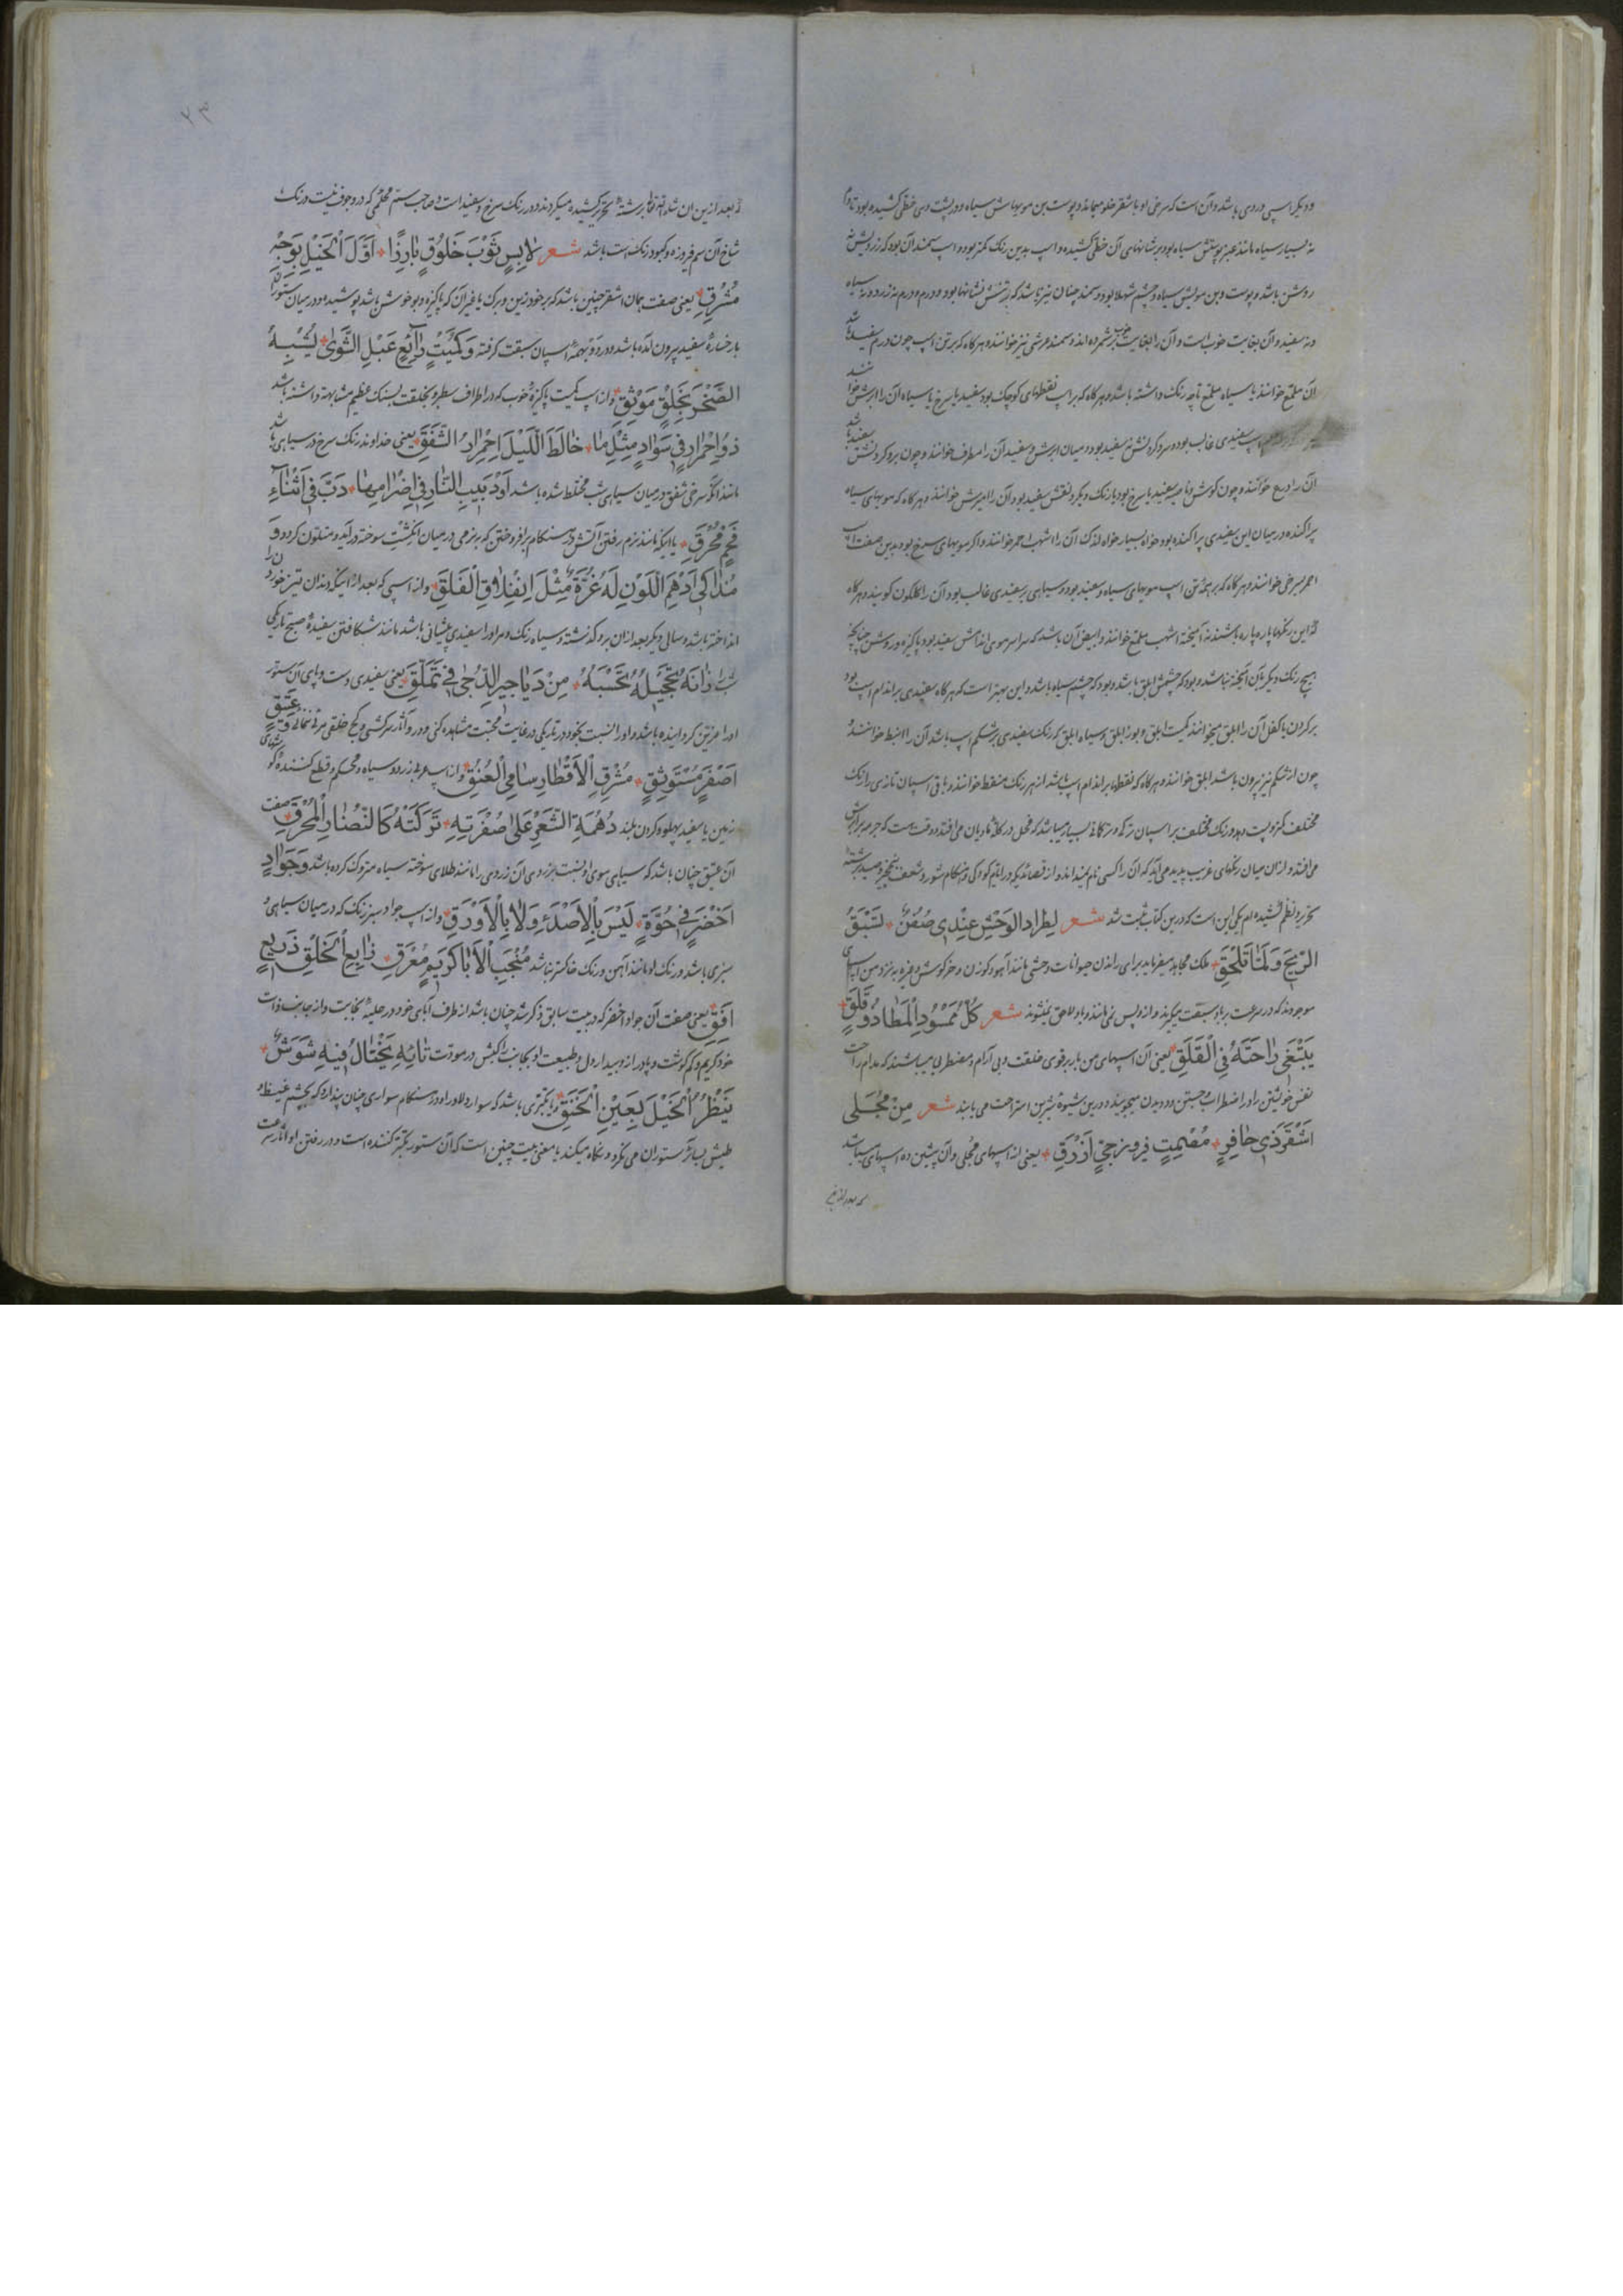 و دیگر اسپی وردی باشد و آن است که سرخی او باشقر خلو میماند و پوست بن مویهاش سیاه و در پشت وی خطی کشیده بود تا دم
نه بسیار سیاه مانند عنبر پوستش سیاه بود بر شانهای آن خطی کشیده و اسپ بدین رنگ کمتر بود و اسپ سمند آن بود که زردیش نه
روشن باشد و پوست و بن مویش سیاه و چشم شهلا بود و سمند چنان نیز باشد که بر تنش نشانها بود و درم درم نه زرد و نه سیاه
و نه سفید و آن بغایت خوب است و آن را بغایت خوب شمرده اند و سمند عرشی نیز خوانند و هر گاه که بر تن اسپ چون درم سفید باشد
آن ملمع خوانند یا سیاه ملمع تا چه رنگ داشته باشد و هر گاه که بر اسپ نقطهای کوچک بود سفید یا سرخ یا سیاه آن را ابرش خوانند
اسپ سفیدی غالب بود و سر و گردنش نه سفید بود در میان ابرش و سفید آن را مطرف خوانند و چون بر و گردنش سفید باشد
آن را درع خوانند و چون گوش و ناصیه سفید یا سرخ بود یا رنگ دیگر و نقش سفید بود آن را مبرش خوانند و هر گاه که مویهای سیاه
پراکنده در میان این سفیدی پراکنده بود خواه بسیار خواه اندک آن را اشهب احمر خوانند و اگر مویهای سرخ بود بدین صفت اسپ
احمر سرخی خوانند و هر گاه که بر همه تن اسپ مویهای سیاه و سفید بود و سیاهی بر سفیدی غالب بود آن را گلگون گویند و هر گاه
از این رنگها پاره پاره باشند نه آمیخته اشهب ملمع خوانند و ابیض آن باشد که سراسر موی اندامش سفید بود پاکیزه و روشن چنانچه
هیچ رنگ دیگر بآن آمیخته نباشد و بود که چشمش ابلق باشد و بود که چشم سیاه باشد و این بهتر است که هر گاه سفیدی بر اندام اسپ بود
بر گردن یا کفل آن را ابلق میخوانند کمیت ابلق و بور ابلق و سیاه ابلق گر رنگ سفیدی بر شکم اسپ باشد آن را انبط خوانند
چون از شکم نیز بیرون باشد ابلق خوانند و هر گاه که نقطها بر اندام اسپ باشد از هر رنگ منقط خوانند و باقی اسپان تازی را رنگ
مختلف کمتر و پست دهد و رنگ مختلف بر اسپان ترکی و ترکمانی بسیار میباشد که فحل در گله مادیان می افتد و وقت هست که جرمه بر ابرش
می افتد و از ان میان رنگهای غریب پدید می آید که آن را کسی نام نمیداند و از قصائد یکه در ایام کودکی و هنگام شور و شعف نجیر و صید برشته
تحریر و نظم کشیده ام یکی این است که درین کتاب ثبت شد شعر لِطِرادِ الوَحْشِ عِنْدِی صُفُنٌ تَسْبِقُ
الرِّیحَ وَ لَمّا تَلْحَقِ ملک مجاهد میفرماید برای راندن حیوانات وحشی مانند آهو و گوزن و خرگوش و غیره به نزد من اسپهای
موجودند که در سرعت بر باد سبقت میگیرند و از و پس نمی مانند و باو لاحق نمیشوند شعر کُلُّ مَمْسُودِ الْمَطا ذُو قَلَقٍ
یَبْتَغِی راحَتَهُ فِی الْقَلَقِ یعنی آن اسپهای من باریر قوی خلقت و بی آرام و مضطرب میباشند که مدام راحت
نفس خویشتن را در اضطراب و جستن و دویدن میجویند و درین شیوه شیرین استراحت می یابند شعر مِنْ مُجَلّی
اَشْقَرٍ ذِی حافِرٍ مُصْمِتٍ فیروزجیٍّ اَزْرَقِ یعنی از اسپهای مجلی و آن پیشین ده اسپهای میباشد
که بعد ازین
۷۳
که بعد ازین ان شاء الله تعالی برشته تحریر کشیده میگردند و در رنگ سرخ و سفید است و صاحب سم محکمی که در و جوف نیست و رنگ
شاخ آن سم فیروزه و کبود رنگ است باشد شعر لابِسٍ ثَوْبَ خَلُوقٍ بارِزًا اَوَّلَ الْخَیْلِ بِوَجْهٍ
مُشْرِقِ یعنی صفت همان اشقر چنین باشد که بر خود زین و برگ یا غیر آن که پاکیزه و بو خوش باشد پوشیده و در میان ستوران
با رخساره سفید بیرون آمده باشد و در دو بهمه اسپان سبقت گرفته وَ کُمَیْتٍ رائِعٍ عَبْلِ الشَّوی یُشْبِهُ
الصَّخْرَ بِخَلْقٍ مُوثَقِ و از اسپ کمیت پاکیزه خوب که در اطراف سطبر و بخلقت بسنگ عظیم مشابهة داشته باشد
ذُو احْمِرارٍ فِی سَوادٍ مِثْلِ ما خالَطَ اللَّیْلَ احْمِرارُ الشَّفَقِ یعنی خداوند رنگ سرخ در سیاهی باشد
مانند آنکه سرخی شفق در میان سیاهی شب مختلط شده باشد اَوْ دَبِیبِ النّارِ فِی اِضْرامِها دَبَّ فِی اَثْناءِ
فَحْمٍ مُحْرَقِ یا اینکه مانند نرم رفتن آتش در هنگام بر افروختن که بنرمی در میان انگشت سوخته در آید و متلون گردد وَ
مُذَکّی اَدْهَمِ اللَّوْنِ لَهُ غُرَّةٌ مِثْلَ انْفِلاقِ الْفَلَقِ و از اسپی که بعد از اینکه دندان تیز خود را
انداخته باشد و سالی دیگر بعد از ان برو گذشته و سیاه رنگ و مر او را سفیدی پیشانی باشد مانند شکافتن سفیده صبح تاریکی
شب را زانَهُ تَحْجِیلُهُ تَحْسَبُهُ مِنْ دَیاجِیرِ الدُّجی فِی تَمَلُّقِ یعنی سفیدی دست و پای آن ستور
او را مزین گردانیده باشد و او را نسبت بخود در تاریکی در غایت محبت مشاهده کنی و در و آثار سرکشی و کج خلقی مرئی نمائی وَ عَتِیقٍ
اَصْفَرٍ مُسْتَوْثِقٍ مُشْرِقِ الْاَقْطارِ سامِی الْعُنُقِ و از اسپ عربی زرد و سیاه و محکم و قطع کننده
زمین با سفید پهلو و گردن بلند دُهْمَةُ الشَّعْرِ عَلی صُفْرَتِهِ تَرَکَتْهُ کَالنُّضارِ الْمُحْرَقِ صفت
آن عتیق چنان باشد که سیاهی موی او نسبت بزردی آن زردی را مانند طلای سوخته سیاه متروک کرده باشد وَ جَوادٍ
اَخْضَرٍ فِی حُوَّةٍ لَیْسَ بِالْاَصْدَءِ وَلا بِالْاَوْرَقِ و از اسپ جواد سبز رنگ که در میان سیاهی
سبزی باشد و رنگ او مانند آهن و رنگ خاکستر نباشد مُنْجَبِ الْآبا کَرِیمٍ مُعْرَقٍ رابِعِ الْخَلْقِ ذَرِیعٍ
اَفَقِ یعنی صفت آن جواد اخضر که در بیت سابق ذکر شد چنان باشد از طرف آبای خود در حلیه نجابت و از جانب ذات
خود کریم و کم گوشت و پادراز و بیدار دل و طبیعت او بجانب راکبش در مودت تائِهٍ یَخْتالُ فِیهِ شَوَشٌ
یَنْظُرُ الْخَیْلَ بِعَیْنِ الْحَنَقِ و با تکبری باشد که سوار دلاور او در هنگام سواری چنان پندارد که بچشم غیظ و
طیش بسائر ستوران می نگرد و نگاه میکند یا معنی بیت چنین است که آن ستور تکبر کننده است و در رفتن او آثار سرعت